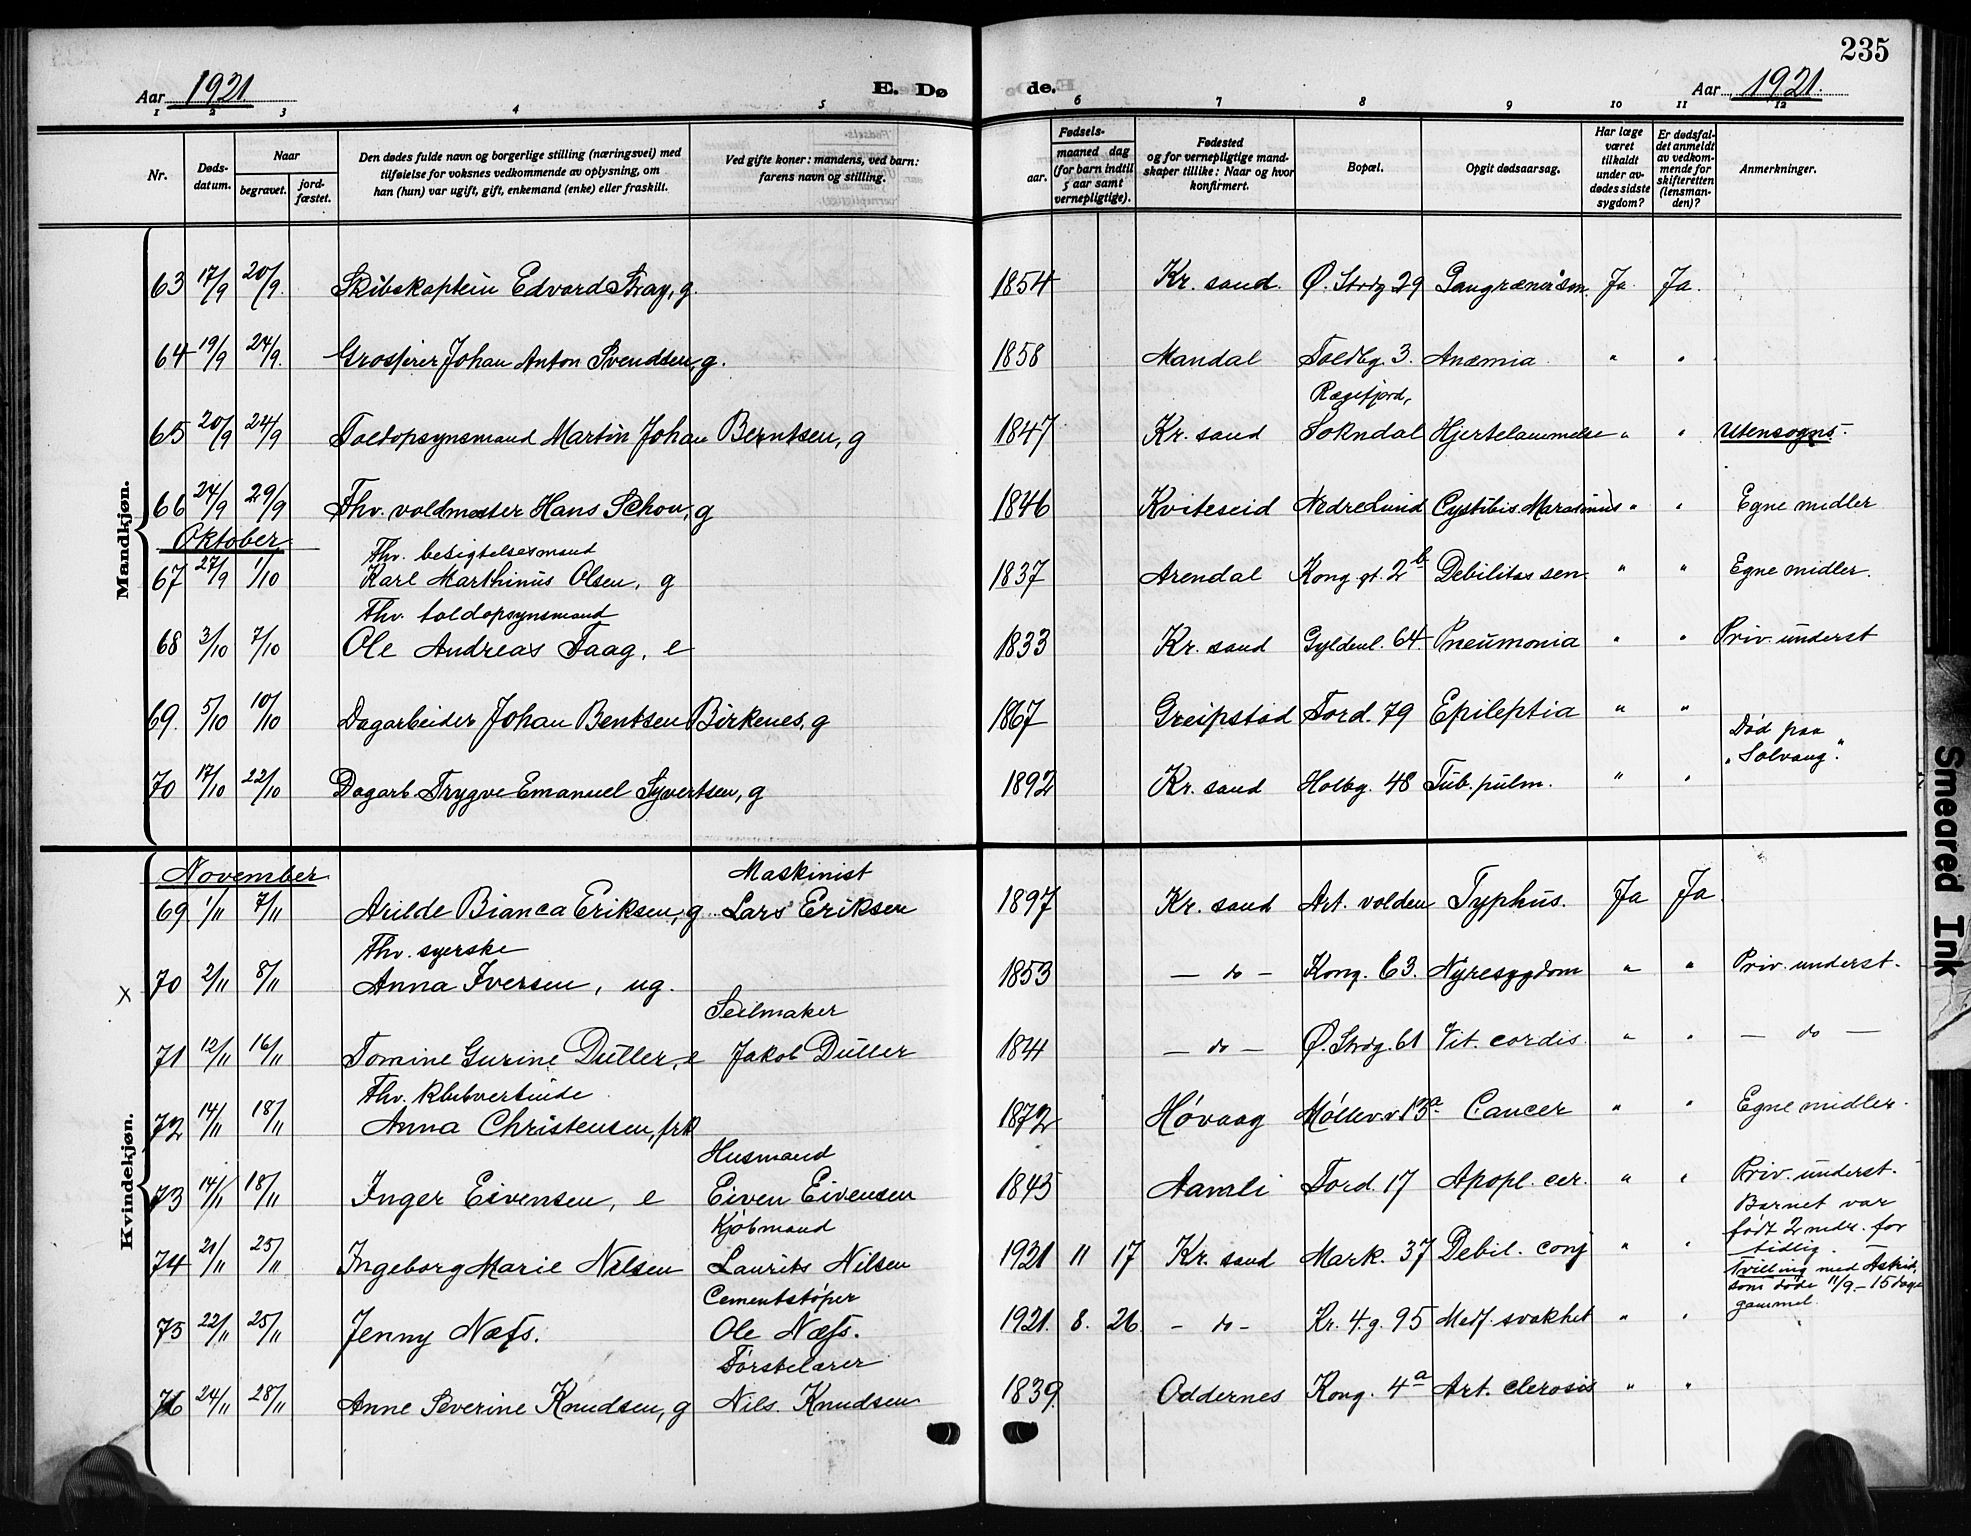 235
Aar 1921 E. Dø de. Aar 1921.
1 2 3 4 5 6 7 8 9 10 11 12
Nr. Døds-datum. Naar begravet. jord-fæstet. Den dødes fulde navn og borgerlige stilling (næringsvei) med tilføielse for voksnes vedkommende av oplysning, om han (hun) var ugift, gift, enkemand (enke) eller fraskilt. Ved gifte koner: mandens, ved barn: farens navn og stilling. Fødsels- aar. maaned dag (for barn indtil 5 aar samt vernepligtige). Fødested og for vernepligtige mand-skaper tillike: Naar og hvor konfirmert. Bopæl. Opgit dødsaarsag. Har læge været tilkaldt under av-dødes sidste sygdom? Er dødsfal-det anmeldt av vedkom-mende for skifteretten (lensman-den)? Anmerkninger.
Mandkjøn.
63 17/9 20/9. Skibskaptein Edvard Stray, g. 1854 Kr. sand. Ø. Strdg 29 Ja Ja.
64 19/9 24/9. Grosserer Johan Anton Svendsen, g. 1858 Mandal Toldbg. 3. Anæmia " "
Rægefjord,
65 20/9 24/9 Toldopsynsmand Martin Johan Berntsen, g 1847 Kr. sand Sokndal Hjertelammelse " " Utensogns.
66 24/9 29/9 Fhv. voldmester Hans Schou, g 1846 Kviteseid Nedrelund Cystitis. Marasmus " " Egne midler
Oktober
Fhv. besigtelsesmand
67 27/9 1/10 Karl Marthinus Olsen, g 1837 Arendal Kong. gt. 2b Debilitas sen. " " Egne midler.
Fhv. toldopsynsmand
68 3/10 7/10 Ole Andreas Taag, e 1833 Kr. sand Gyldenl. 64. Pneumonia " " Priv. underst
69. 5/10 10/10 Dagarbeider Johan Bentsen Birkenes, g 1867 Greipstad Tord. 79 Epileptia " "
Død paa
"Solvang".
70 17/10 22/10 Dagarb. Trygve Emanuel Syvertsen, g 1892 Kr. sand Holbg. 48 Tub. pulm. " "
Kvindekjøn.
November Maskinist
69 1/11 7/11 Arilde Bianca Eriksen, g. Lars Eriksen 1897 Kr. sand Art. volden Typhus. Ja Ja.
Fhv. syerske
x 70 2/11 8/11 Anna Iversen, ug. 1853 — do — Kong. 63. Nyresygdom " " Priv. underst.
Seilmaker
71 12/11 16/11 Tomine Gurine Duller, e Jakob Duller 1844 — do — Ø. Strdg. 61 Vit. cordis. " " — do —
Fhv. klubvertinde
72 14/11 18/11 Anna Christensen, frk 1872 Høvaag Møllev. v. 13a Cancer " " Egne midler.
Husmand
73 14/11 18/11 Inger Eivensen, e Eiven Eivensen 1843 Aamli Tord. 17 Apopl. cer. " " Priv. underst.
Kjøbmand
74 21/11 25/11 Ingeborg Marie Nilsen Laurits Nilsen 1921 11 17 Kr. sand Mark. 37 Debil. conj " "
Barnet var
født 2 mdr. for
tidlig.
Cementstøper
75 22/11 25/11 Jenny Næss. Ole Næss. 1921. 8. 26. — do — Kr. 4. g. 95 Medf. svakhet " "
Tvilling med Astrid,
som døde 11/9 – 15 dage
gammel.
Førstelærer
76 24/11 28/11 Anne Severine Knudsen, g Nils Knudsen 1839. Oddernes Kong. 4a Art. clerosis " "
Smeared Ink